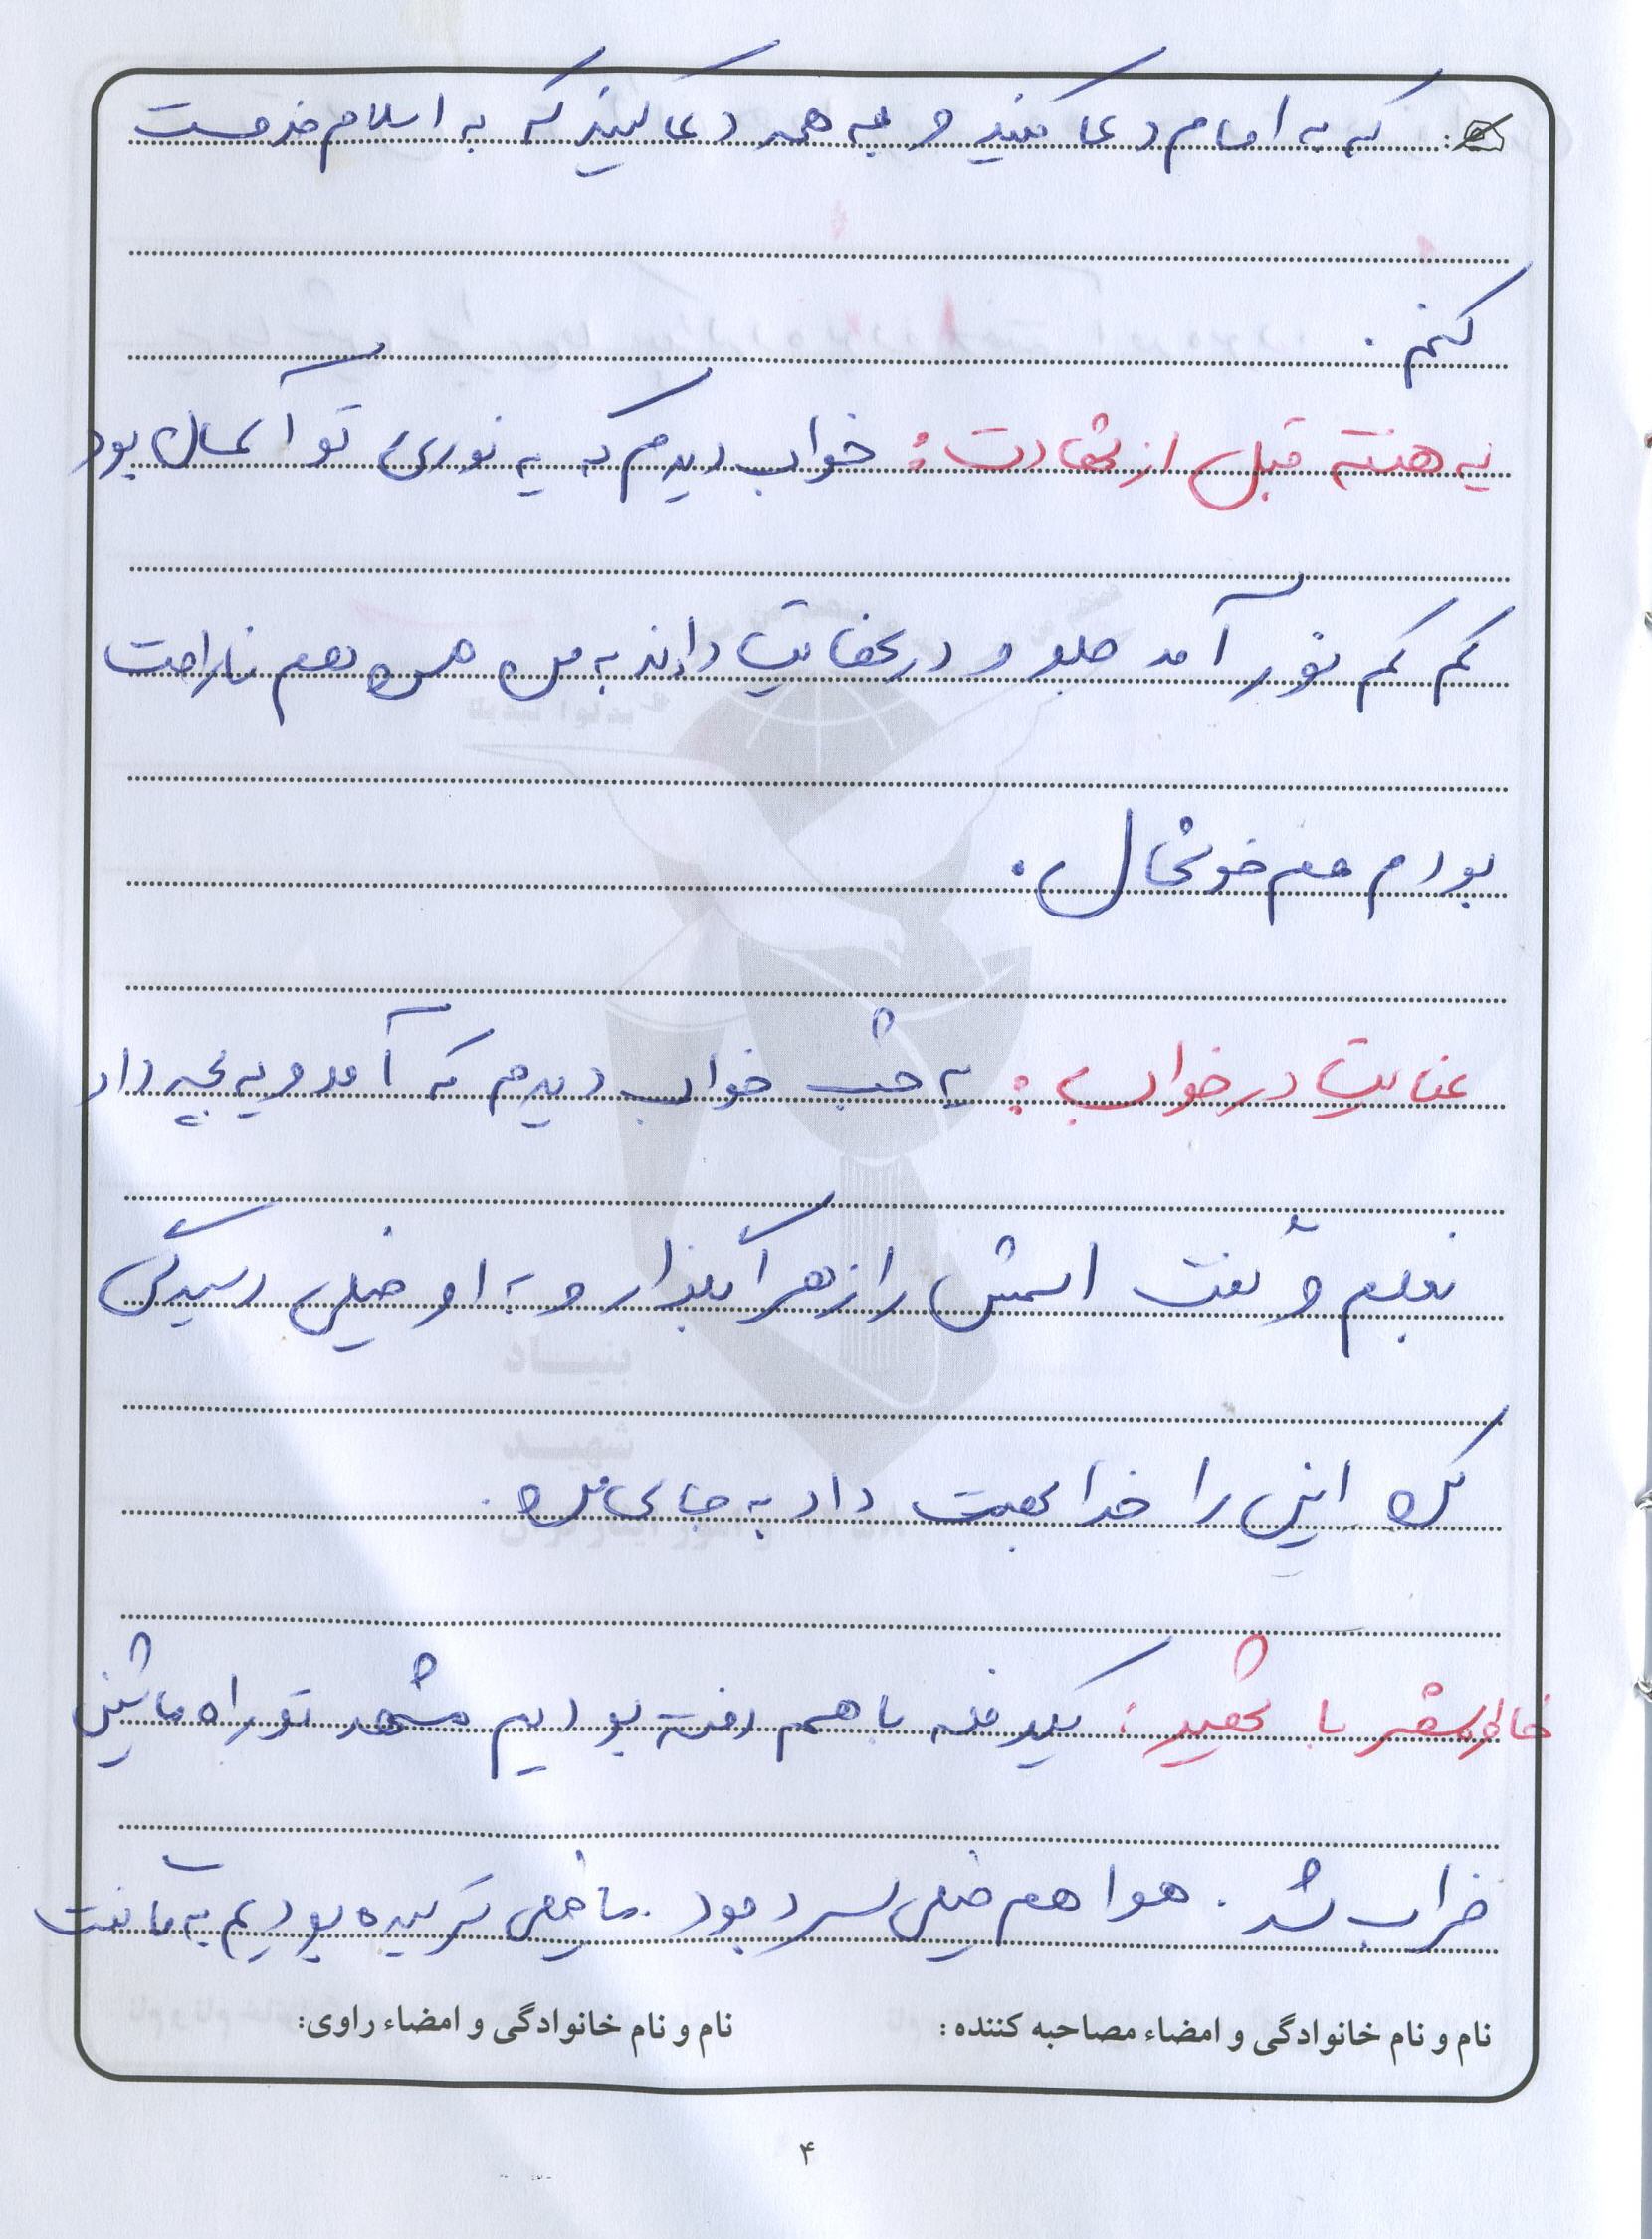 که به امام دعا کنید و به همه دعا کنید که به اسلام خدمت
کنم.
یه هفته قبل از شهادت: خواب دیدم که یه نوری تو آسمان بود
کم کم نور آمد جلو و دریافت دادند به من من هم ناراحت
بودم هم خوشحال.
عنایت در خواب: یه شب خواب دیدم که آمد و یه بچه داد
بغلم و گفت اسمش را زهرا بگذار و به او خیلی رسیدگی
کن این را خدا بهت داد به جای من.
خاطره سفر با شهید: یکدفعه با هم رفته بودیم مشهد تو راه ماشین
خراب شد. هوا هم خیلی سرد بود. ما خیلی ترسیده بودیم به ما گفت
نام و نام خانوادگی و امضاء مصاحبه کننده: نام و نام خانوادگی و امضاء راوی:
۴